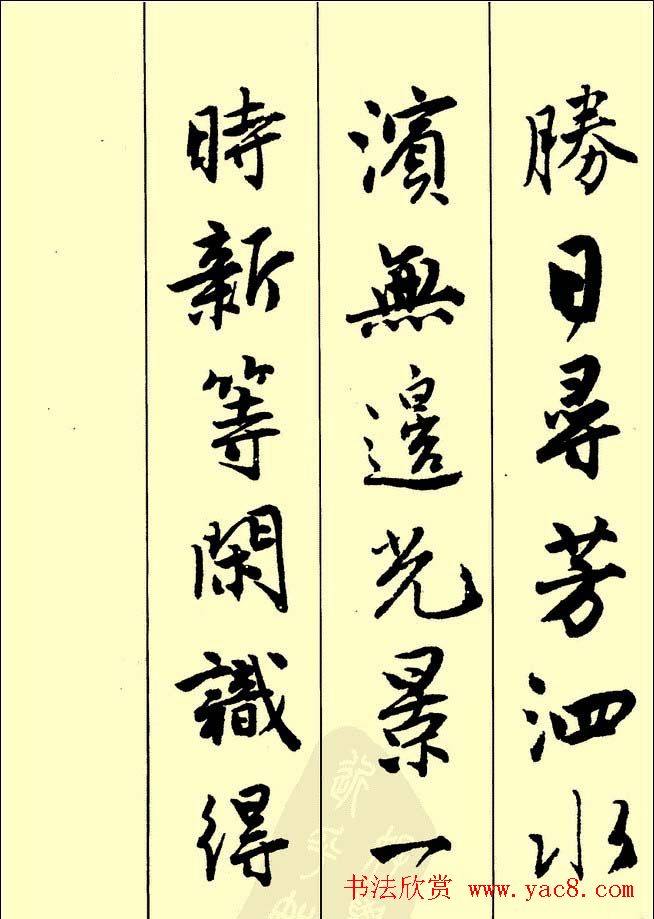 勝日尋芳泗水
濱無邊光景一
時新等閑識得
书法欣赏 www.yac8.com